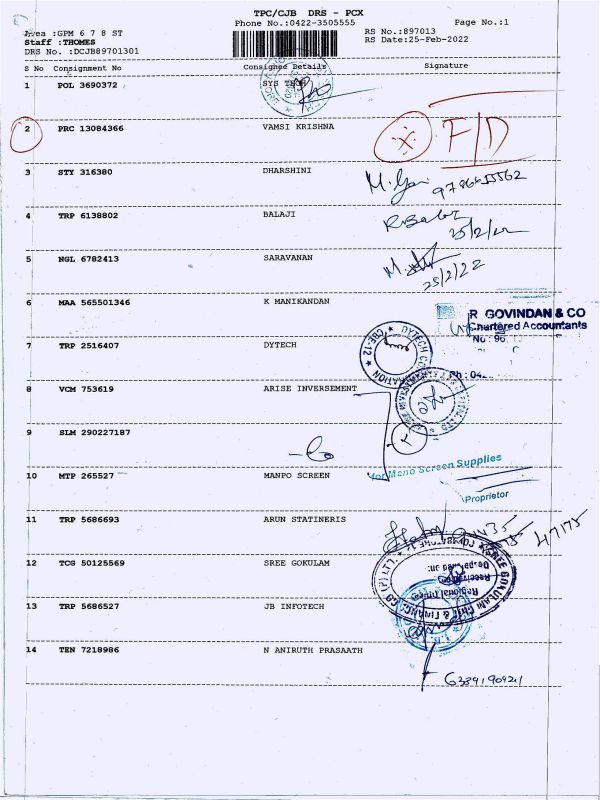 TPC/CJB DRS - PCX
Phone No.:0422-3505555
Page No.:1
Area :GPM 6 7 8 ST
RS No.:897013
Staff :THOMES
RS Date:25-Feb-2022
DRS No. :DCJB89701301
S No Consignment No Consignee Details Signature
1 POL 3690372 SYS TECH
2 PRC 13084366 VAMSI KRISHNA F/D
3 STY 316380 DHARSHINI
4 TRP 6138802 BALAJI
25/2/22
5 NGL 6782413 SARAVANAN
25/2/22
6 MAA 565501346 K MANIKANDAN
R GOVINDAN & CO
Chartered Accountants
7 TRP 2516407 DYTECH
DYTECH
CBE-12
Ph : 04
8 VCM 753619 ARISE INVERSEMENT
9 SLM 290227187
for Mano Screen Supplies
10 MTP 265527 MANPO SCREEN
Proprietor
11 TRP 5686693 ARUN STATINERIS
47175
12 TCG 50125569 SREE GOKULAM
SREE GOKULAM CHIT & FINANCE CO (P) LTD.
Regional Office
13 TRP 5686527 JB INFOTECH
14 TEN 7218986 N ANIRUTH PRASAATH